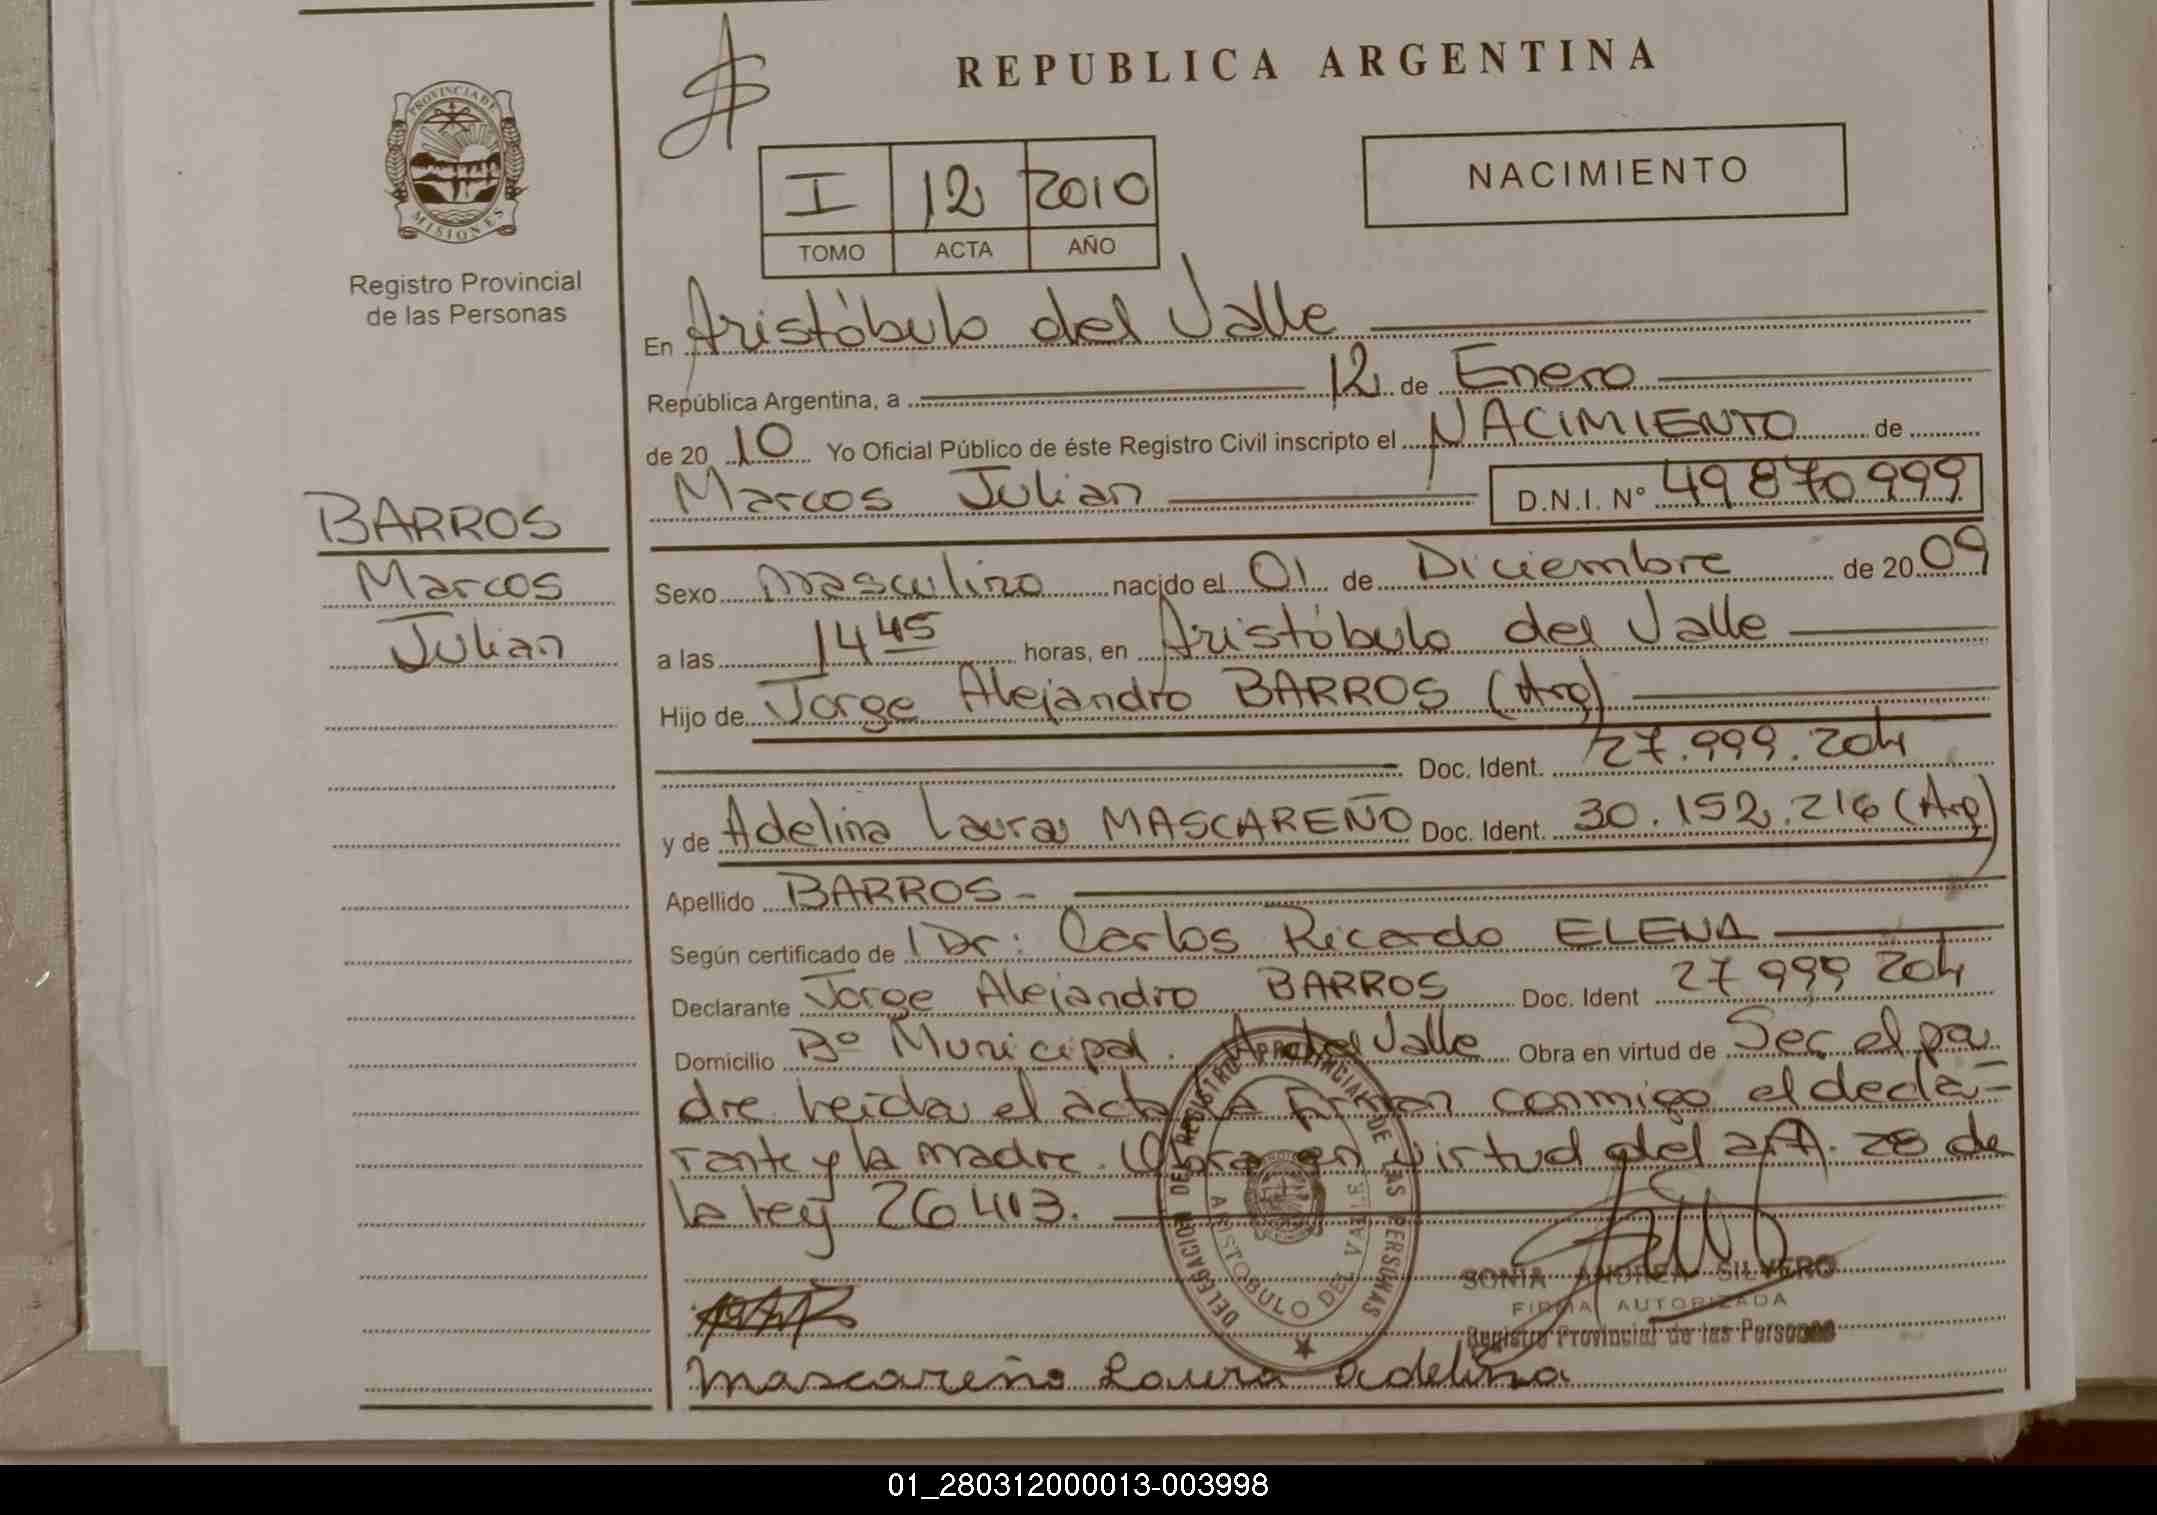 REPUBLICA ARGENTINA
PROVINCIA DE
MISIONES
Registro Provincial
de las Personas
I 12 2010
TOMO ACTA AÑO
NACIMIENTO
En Aristóbulo del Valle
República Argentina, a 12 de Enero
de 20 10 Yo Oficial Público de éste Registro Civil inscripto el NACIMIENTO de
Marcos Julian D.N.I. Nº 49 870 999
BARROS
Marcos
Julian
Sexo Masculino nacido el 01 de Diciembre de 20 09
a las 14 45 horas, en Aristóbulo del Valle
Hijo de Jorge Alejandro BARROS (Arg)
Doc. Ident. 27.999.204
y de Adelina Laura MASCAREÑO Doc. Ident. 30.152.216 (Arg)
Apellido BARROS -
Según certificado de Dr: Carlos Ricardo ELENA
Declarante Jorge Alejandro BARROS Doc. Ident 27 999 204
Domicilio Bº Municipal. A. del Valle Obra en virtud de Ser el pa
dre leida el acta la firman conmigo el decla-
rante y la madre. Obra en virtud del art. 28 de
la ley 26413.
DELEGACION DEL REGISTRO PROVINCIAL DE LAS PERSONAS
ARISTOBULO DEL VALLE
SONIA ANDREA SILVERO
FIRMA AUTORIZADA
Registro Provincial de las Personas
Mascareño Laura Adelina
01_280312000013-003998